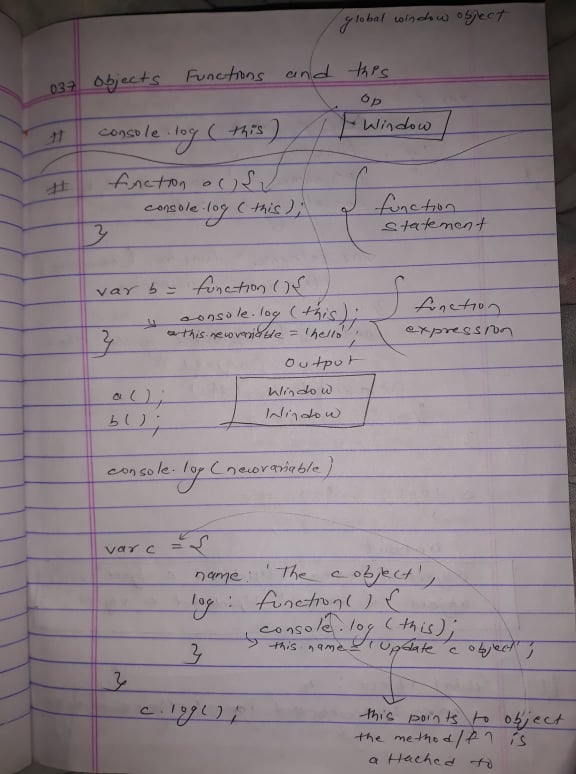 global window object
037 Objects Functions and this
Op
# console.log (this) Window
# function a() {
console.log (this);
}
function
statement
var b = function() {
console.log (this);
this.newvariable = 'hello';
}
function
expression
output
a();
b();
Window
Window
console.log (newvariable)
var c = {
name: 'The c object',
log : function() {
console.log (this);
this.name = 'Update c object';
}
}
c.log();
this points to object
the method/fn is
attached to